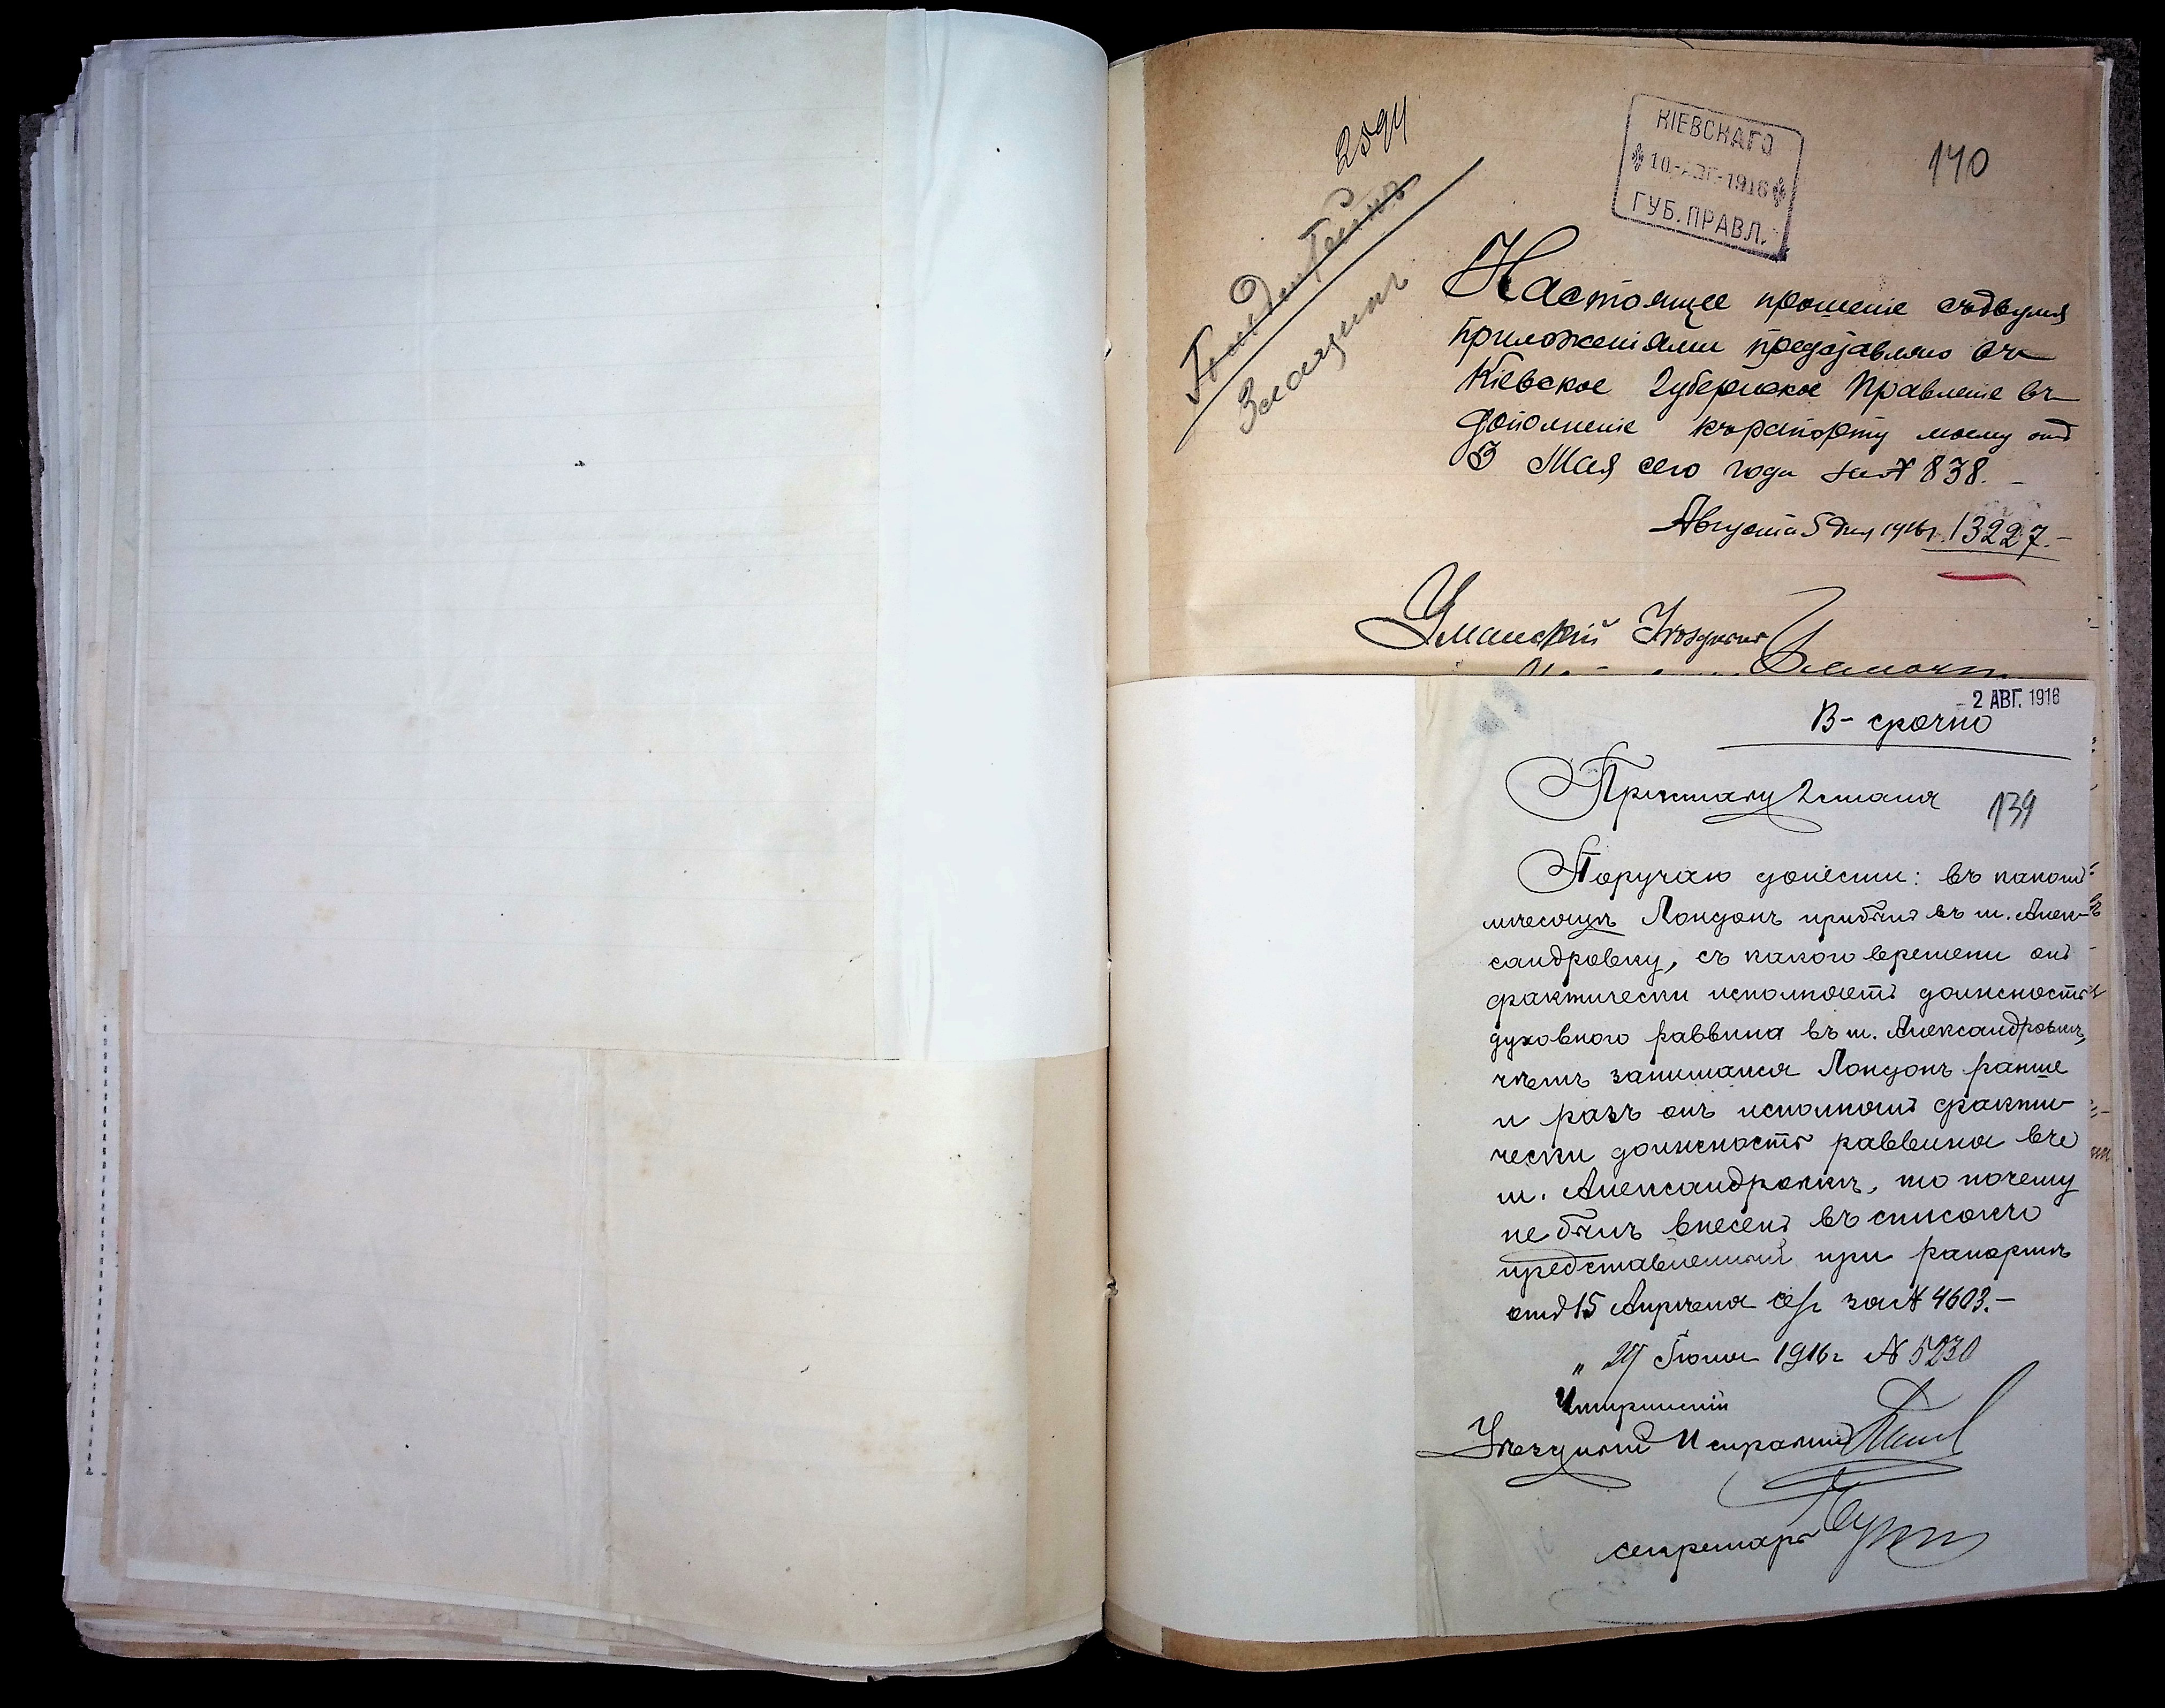 2594
Златкинъ
КІЕВСКАГО
10-АВГ-1916
ГУБ. ПРАВЛ.
140
Настоящее прошеніе съ двумя
приложеніями представляю въ
Кіевское Губернское Правленіе въ
дополненіе къ рапорту моему отъ
3 Мая сего года за № 838.
Августа 5 дня 1916 г. 13227.
Уманскій Уѣздный
2 АВГ. 1916
В-срочно
Приставу 2 стана
139
Поручаю донести: въ какомъ
мѣсяцѣ Лондонъ прибылъ въ м. Алек-
сандровку, съ какого времени онъ
фактически исполняетъ должность
духовного раввина въ м. Александровкѣ,
чѣмъ занимался Лондонъ раньше
и разъ онъ исполнялъ факти-
чески должность раввина въ
м. Александровкѣ, то почему
не былъ внесенъ въ списокъ
представленный при рапортѣ
отъ 15 Апрѣля с/г за № 4603.-
" 29 Іюля 1916 г № 5230
Чигиринскій
Уѣздный Исправникъ
секретарь